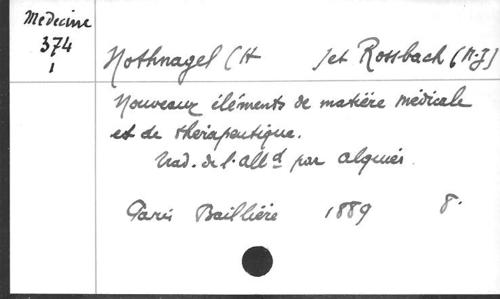 Medecine
374
1
Nothnagel (H        )et Rossbach (M-J)
Nouveaux éléments de matière médicale
et de thérapeutique.
Trad. de l'All.d par Alquier.
Paris Baillière 1889 8°